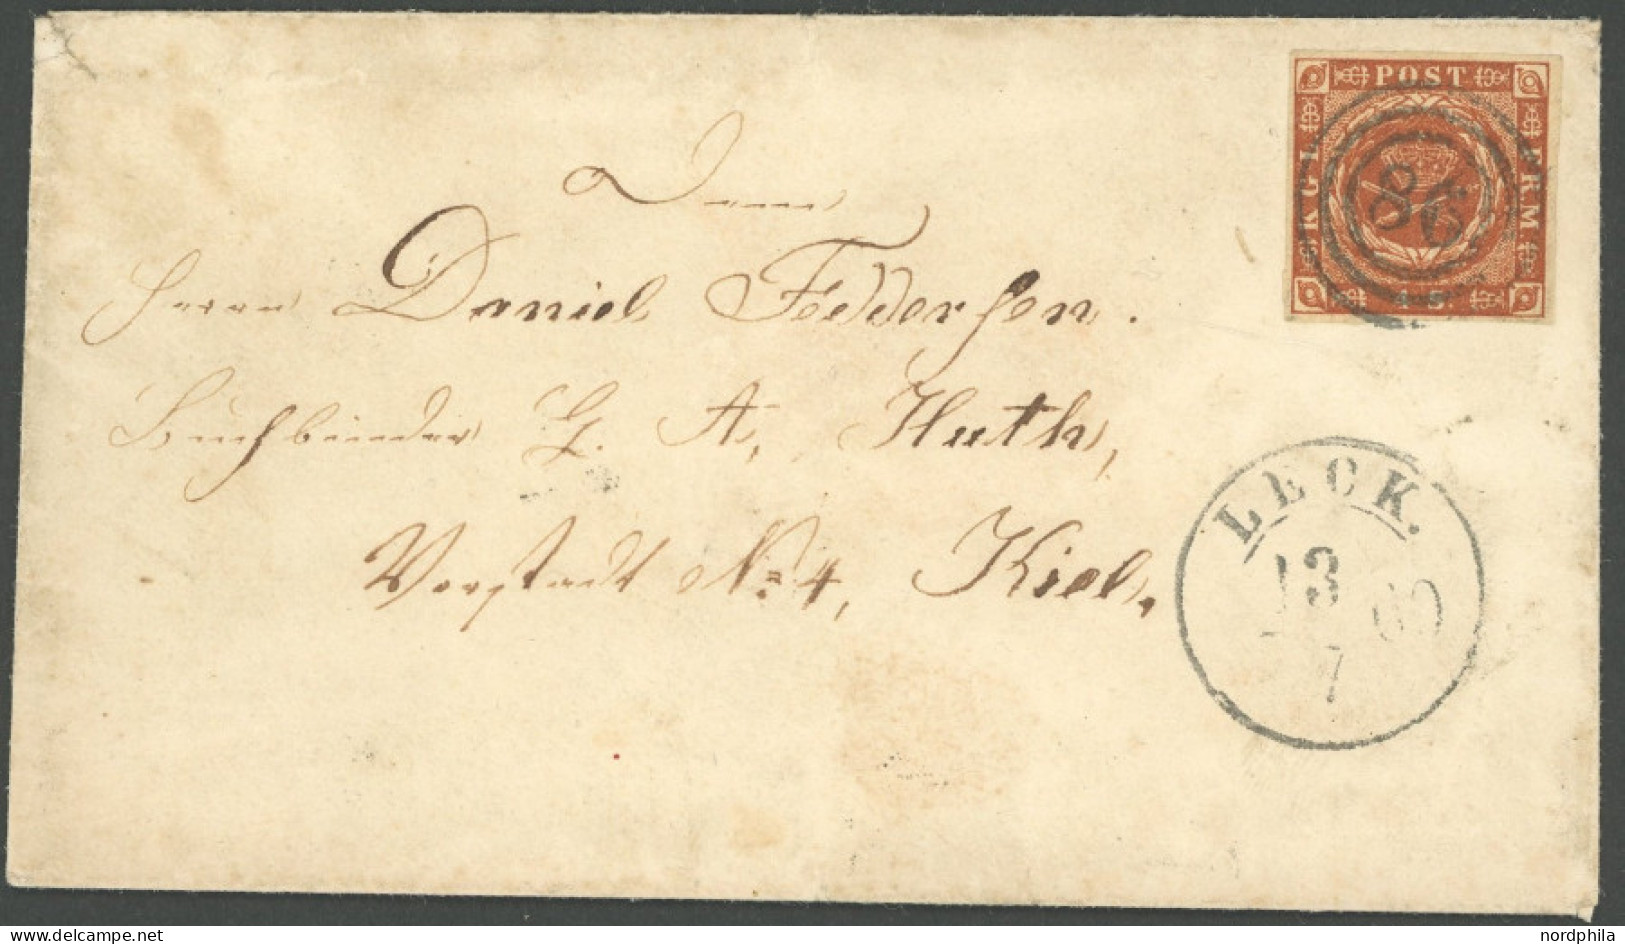 KGL POST FRM
4 S
86
Dem
Herrn Daniel Feddersen.
Buchbinder G. A. Huth,
Vorstadt No 4, Kiel.
LECK.
13
60
7
www.delcampe.net
nordphila